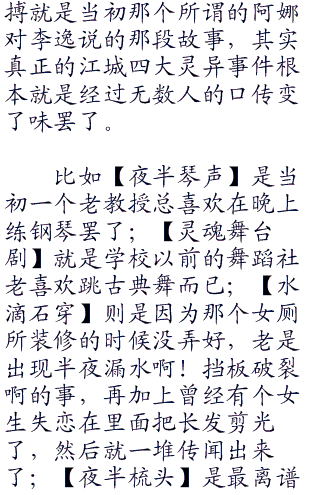 搏就是当初那个所谓的阿娜
对李逸说的那段故事，其实
真正的江城四大灵异事件根
本就是经过无数人的口传变
了味罢了。
比如【夜半琴声】是当
初一个老教授总喜欢在晚上
练钢琴罢了；【灵魂舞台
剧】就是学校以前的舞蹈社
老喜欢跳古典舞而已；【水
滴石穿】则是因为那个女厕
所装修的时候没弄好，老是
出现半夜漏水啊！挡板破裂
啊的事，再加上曾经有个女
生失恋在里面把长发剪光
了，然后就一堆传闻出来
了；【夜半梳头】是最离谱